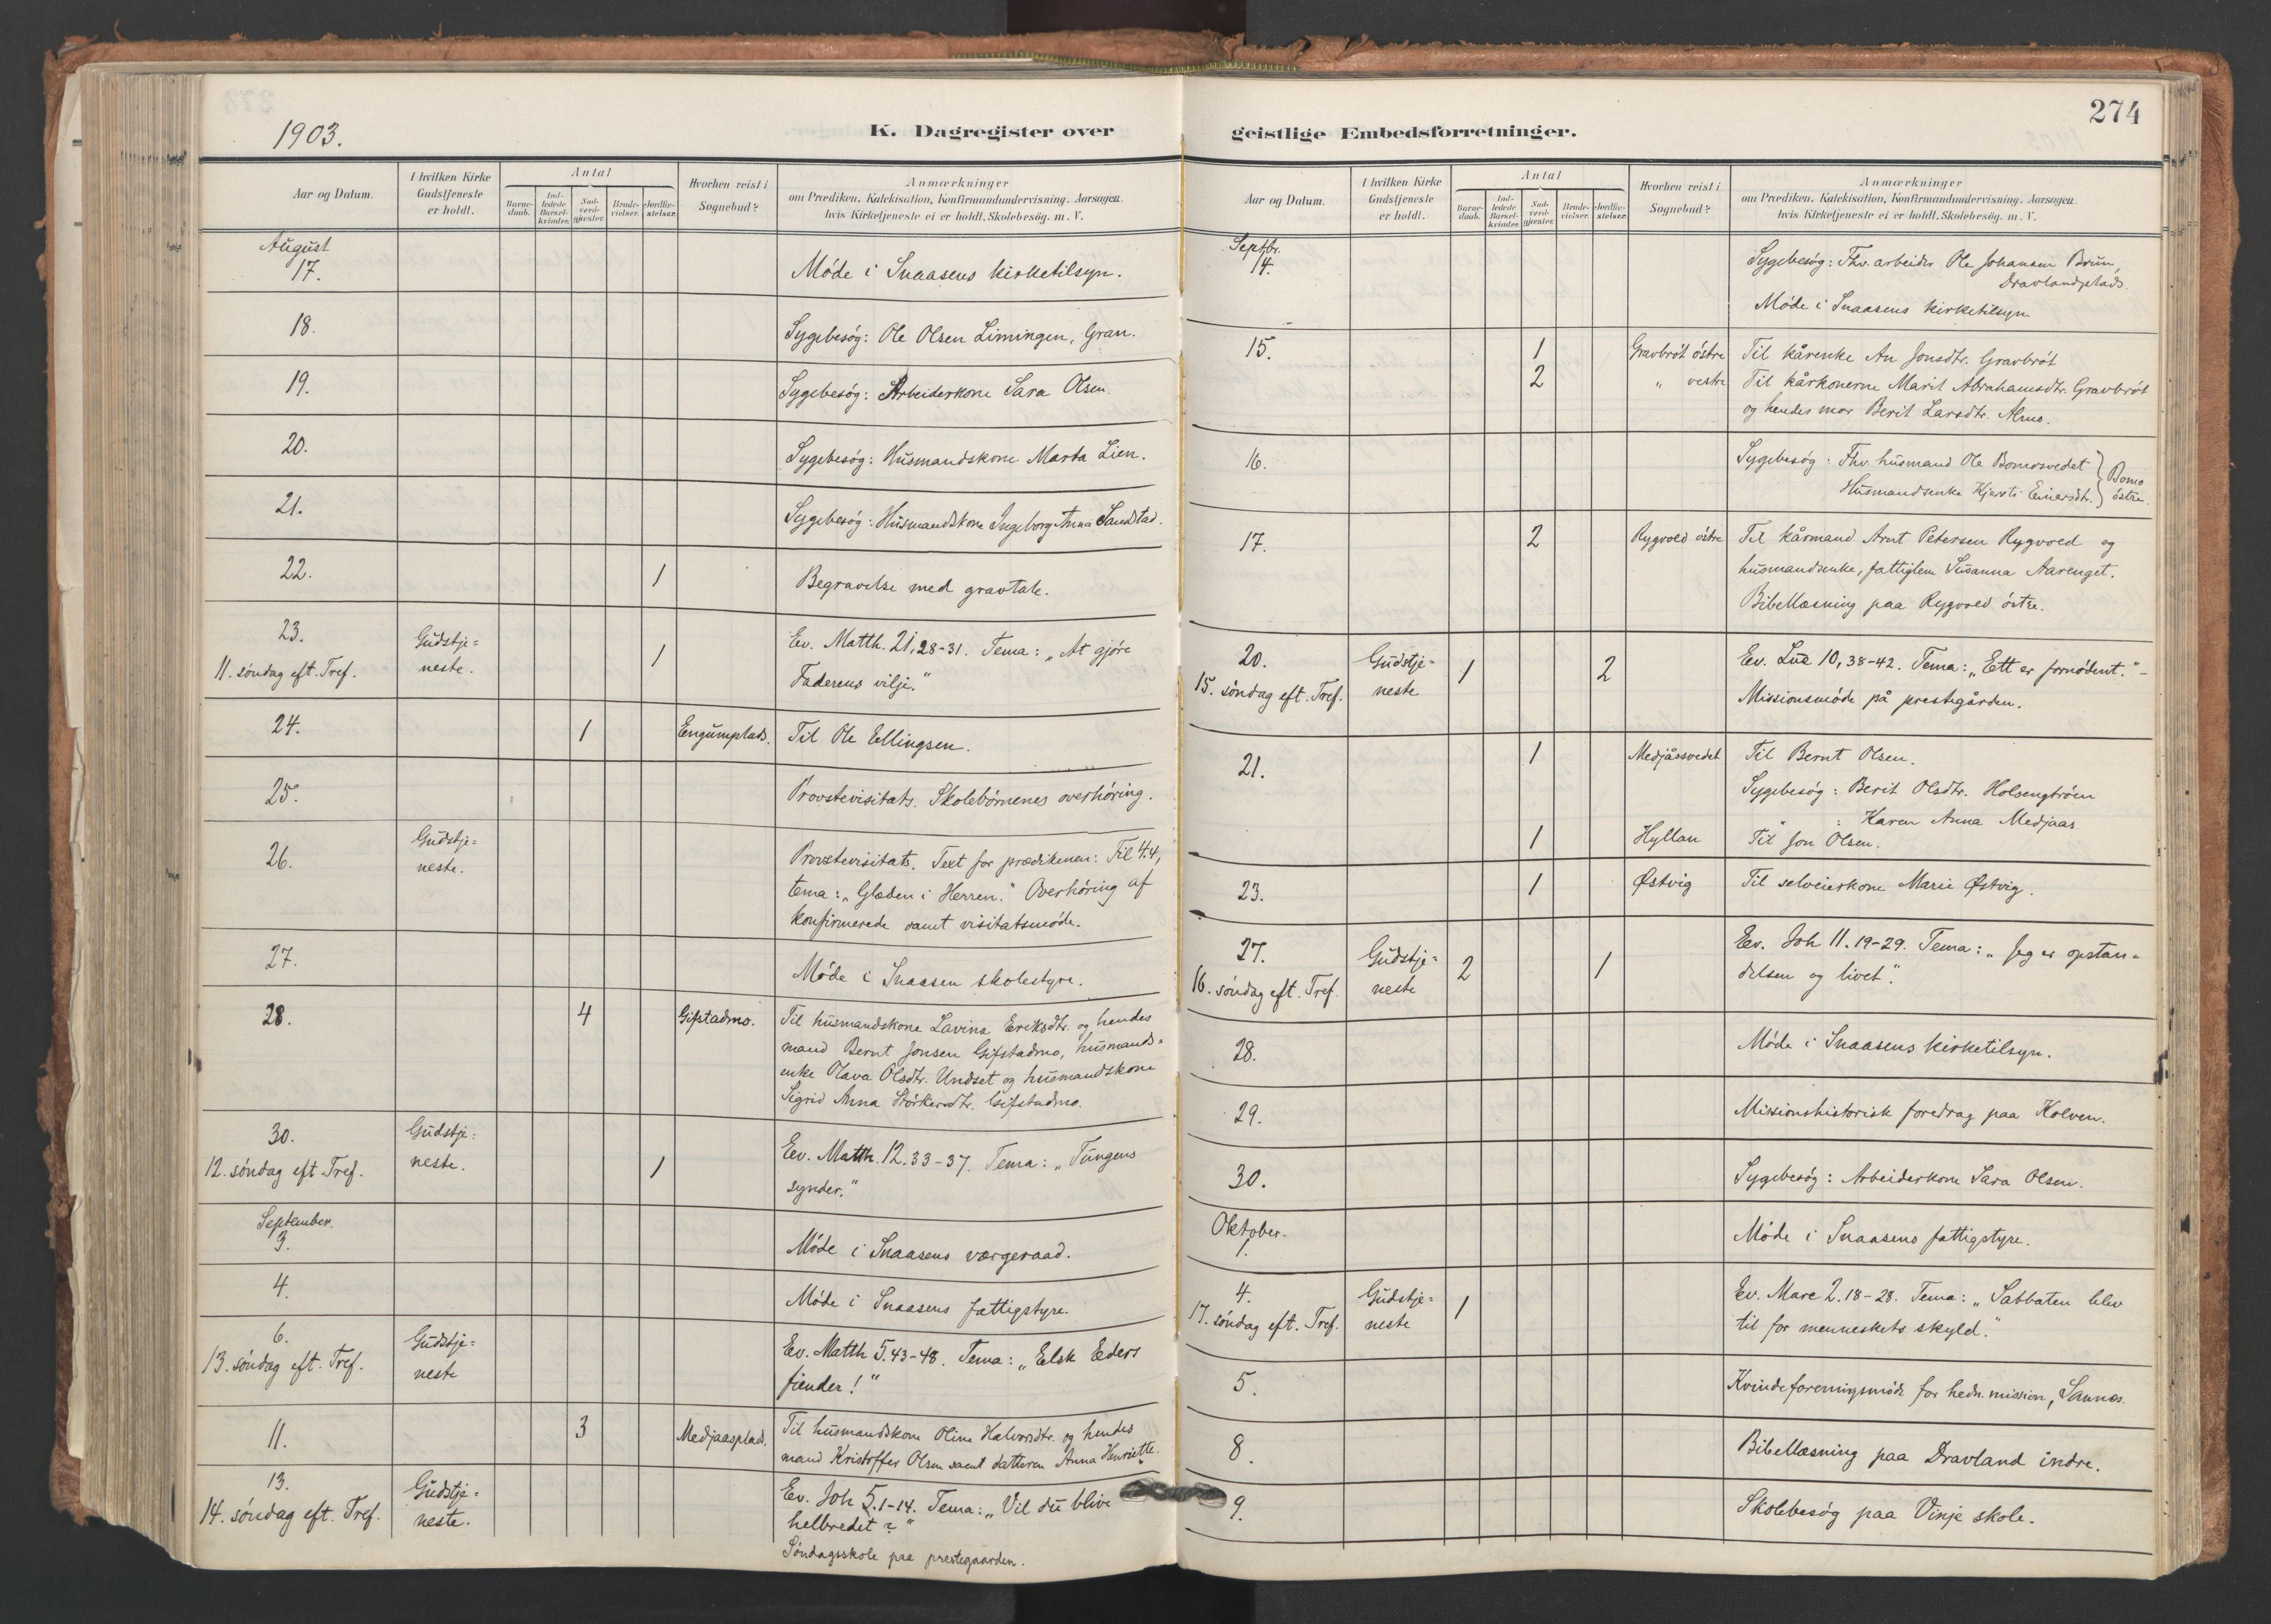 1903.
K. Dagregister over
Aar og Datum.
I hvilken Kirke
Gudstjeneste
er holdt.
Antal
Barne-
daab.
Ind-
ledede
Barsel-
kvinder.
Nad-
verd-
gjester.
Brude-
vielser.
Jordfæ-
stelser.
Hvorhen reist i
Sognebud?
Anmærkninger
om Prædiken. Katekisation, Konfirmandundervisning. Aarsagen.
hvis Kirketjeneste ei er holdt. Skolebesøg. m. V.
August
17.
Møde i Snaasens kirketilsyn.
18.
Sygebesøg: Ole Olsen Limingen, Gran.
19.
Sygebesøg: Arbeiderkone Sara Olsen.
20.
Sygebesøg: Husmandskone Marta Lien.
21.
Sygebesøg: Husmandskone Ingeborg Anna Sandstad.
22.
1
Begravelse med gravtale.
23.
11. søndag eft. Tref.
Gudstje=
neste.
1
Ev. Matth. 21, 28-31. Tema: „At gjøre
Faderens vilje."
24.
1
Engumplads.
Til Ole Ellingsen.
25.
Provstevisitats. Skolebørnenes overhøring.
26.
Gudstje=
neste.
Provstevisitats. Text for prædikenen: Fil 4.4,
tema: „Glæden i Herren." Overhøring af
konfirmerede samt visitatsmøde.
27.
Møde i Snaasen skolestyre.
28.
4
Gifstadmo.
Til husmandskone Lavina Eriksdtr. og hendes
mand Bernt Jonsen Gifstadmo, husmands=
enke Olava Olsdtr. Undset og husmandskone
Sigrid Anna Størkersdtr. Gifstadmo.
30.
12. søndag eft. Tref.
Gudstje=
neste.
1
Ev. Matth. 12. 33-37. Tema: „Tungens
synder."
September.
3.
Møde i Snaasens værgeraad.
4.
Møde i Snaasens fattigstyre.
6.
13. søndag eft. Tref.
Gudstje=
neste
Ev. Matth 5. 43-48. Tema: „Elsk Eders
fiender!"
11.
3
Medjaasplads.
Til husmandskone Oline Halvorsdtr. og hendes
mand Kristoffer Olsen samt datteren Anna Henriette.
13.
14. søndag eft. Tref.
Gudstje=
neste.
Ev. Joh 5. 1-14. Tema: „Vil du blive
helbredet?"
Søndagsskole paa prestegaarden.
274
geistlige Embedsforretninger.
Aar og Datum.
I hvilken Kirke
Gudstjeneste
er holdt.
Antal
Barne-
daab.
Ind-
ledede
Barsel-
kvinder.
Nad-
verd-
gjester.
Brude-
vielser.
Jordfæ-
stelser.
Hvorhen reist i
Sognebud?
Anmærkninger
om Prædiken. Katekisation, Konfirmandundervisning. Aarsagen.
hvis Kirketjeneste ei er holdt. Skolebesøg. m. V.
Septbr.
14.
Sygebesøg: Fhv. arbeider Ole Johansen Brun,
Dravlandplads.
Møde i Snaasens kirketilsyn
15.
1
Gravbrøt østre
Til kårenke An Jonsdtr. Gravbrøt
2
„ vestre
Til kårkonerne Marit Abrahamsdtr. Gravbrøt
og hendes mor Berit Larsdtr. Almo.
16.
Sygebesøg: Fhv. husmand Ole Bomosvedet
Husmandsenke Kjersti Einarsdtr.
Bomo
østre.
17.
2
Rygvold østre
Til kårmand Arnt Petersen Rygvold og
husmandsenke, fattiglem Susanna Aarenget.
Bibellæsning paa Rygvold østre.
20.
15. søndag eft. Tref.
Gudstje=
neste
1
2
Ev. Luc 10, 38-42. Tema: „Ett er fornødent." -
Missionsmøde på prestegården.
21.
1
Medjåssvedet
Til Bernt Olsen.
Sygebesøg: Berit Olsdtr. Holsengtrøen
„ : Karen Anna Medjaas
1
Hyllan
Til Jon Olsen.
23.
1
Østvig
Til selveierkone Marie Østvig.
27.
16. søndag eft. Tref.
Gudstje=
neste
2
1
Ev. Joh 11. 19-29. Tema: „Jeg er opstan=
delsen og livet".
28.
Møde i Snaasens kirketilsyn.
29.
Missionshistorisk foredrag paa Kolven.
30.
Sygebesøg: Arbeiderkone Sara Olsen.
Oktober.
1.
Møde i Snaasens fattigstyre.
4.
17. søndag eft. Tref.
Gudstje=
neste
1
Ev. Marc 2. 18-28. Tema: „Sabbaten blev
til for menneskets skyld."
5.
Kvindeforeningsmøde for hedn. mission, Sannes.
8.
Bibellæsning paa Dravland indre.
9.
Skolebesøg paa Vinje skole.